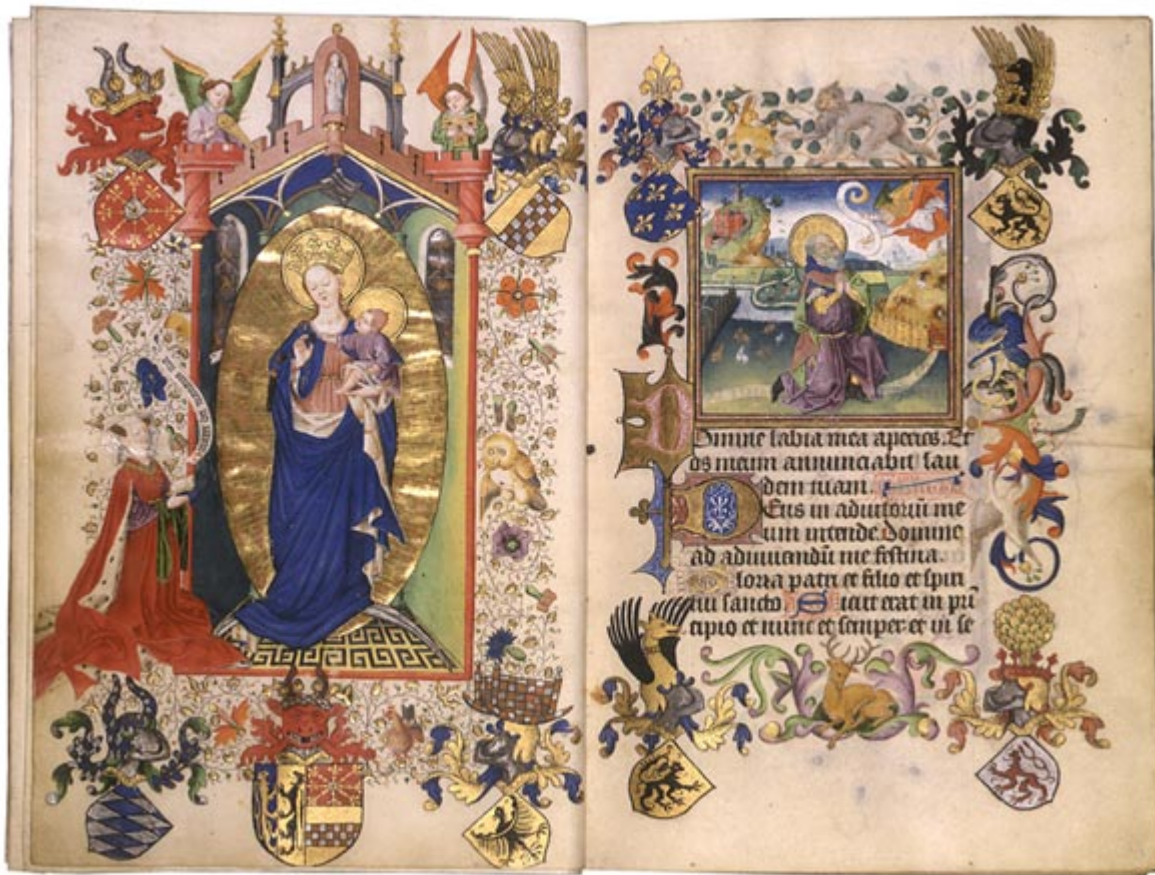 Domine labia mea aperies. Et
os meum annunciabit lau
dem tuam.
Deus in adiutoriū me
um intende Domine
ad adiuuandū me festina.
Gloria patri et filio et spiri
tui sancto Sicut erat in prī
cipio et nunc et semper et in se